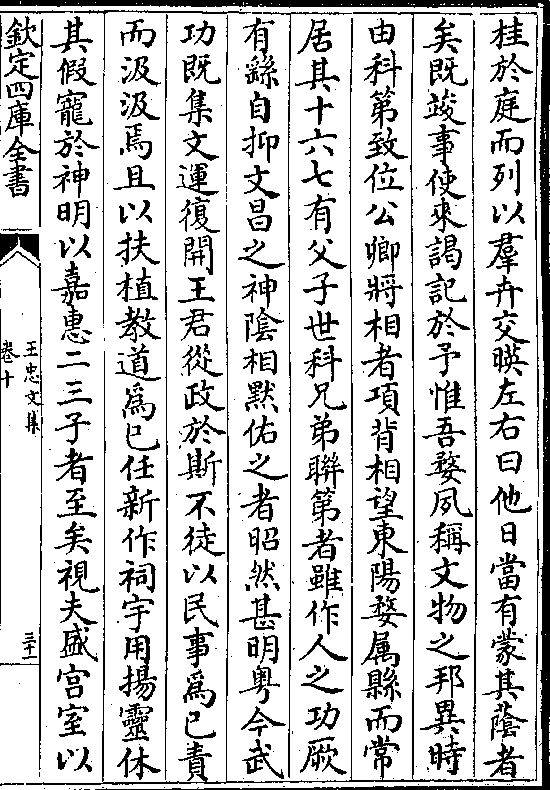 桂於庭而列以羣卉交暎左右曰他日當有蒙其蔭者
矣既竣事使來謁記於予惟吾婺夙稱文物之邦異時
由科第致位公卿將相者項背相望東陽婺属縣而常
居其十六七有父子世科兄弟聯第者雖作人之功厥
有繇自抑文昌之神陰相黙佑之者昭然甚明粤今武
功既集文運復開王君從政於斯不徒以民事為已責
而汲汲焉且以扶植教道為已任新作祠宇用揚靈休
其假寵於神明以嘉惠二三子者至矣視夫盛宫室以
欽定四庫全書
王忠文集
卷十
三十一